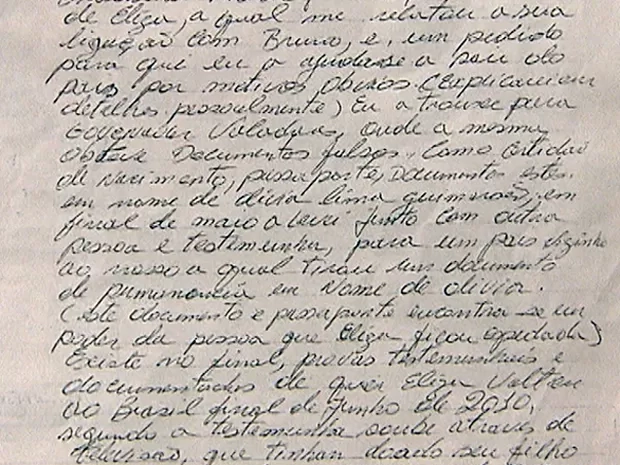 de Eliza, a qual me relatou a sua
ligação com Bruno, e, um pedido
para que eu a ajudasse a sair do
pais por motivos obvios. (Explicarei em
detelhes pessoalmente) Eu a trouxe para
Governador Valadares, onde a mesma
obteve Documentos falsos. Como Certidão
de Nascimento, passaporte, Documentos estes
em nome de Livia Lima guimarães, em
final de maio a levei junto com outra
pessoa e testemunha, para um pais vizinho
ao nosso a qual tirou um documento
de permanencia em Nome de Livia.
(este documento e passaporte encontra-se em
poder da pessoa que Eliza ficou espedada)
Existe no final, provas testemunhais e
documentadas de que Eliza Voltou
ao Brasil final de Junho de 2010,
segundo a testemunha soube atraves de
televisão, que tinham doado seu filho